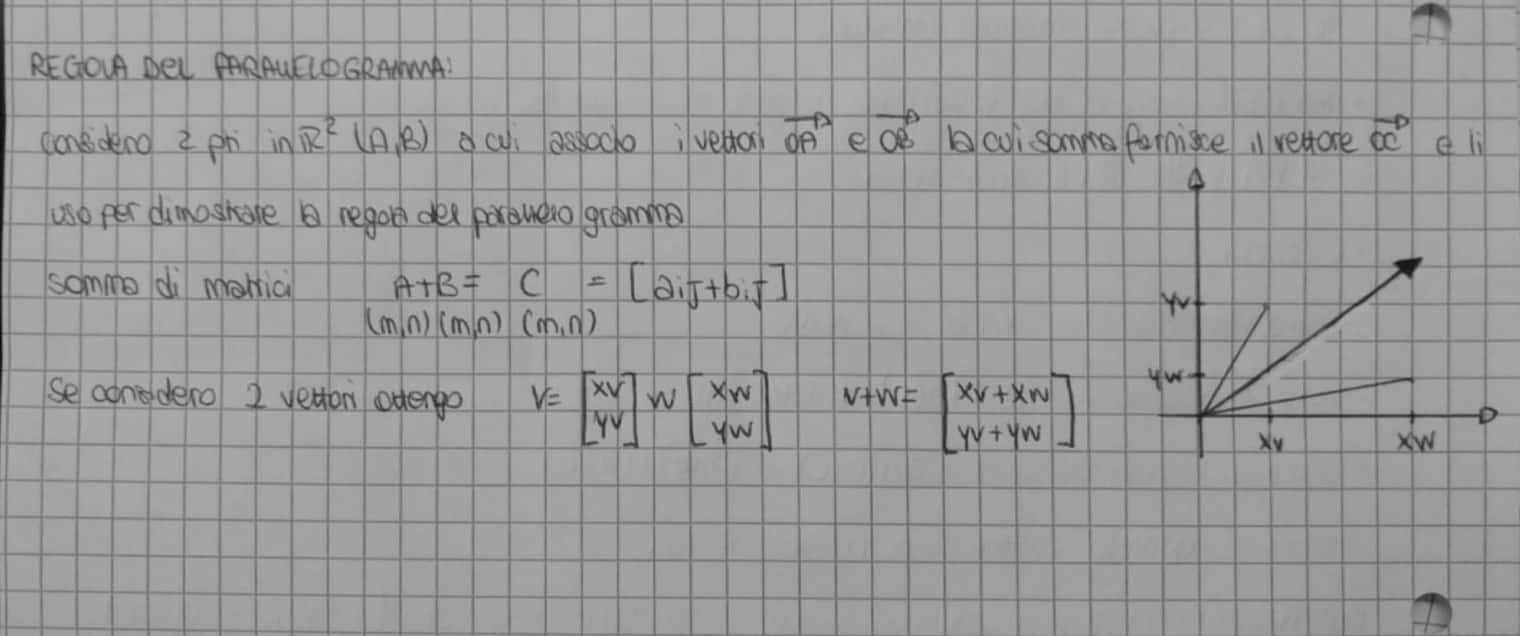 REGOLA DEL PARALLELOGRAMMA:
considero 2 pti in ℝ² (A,B) a cui associo i vettori OA→ e OB→ la cui somma fornisce il vettore OC→ e li
uso per dimostrare la regola del parallelogramma
somma di matrici A+B= C = [aij+bij]
(m,n) (m,n) (m,n)
Se considero 2 vettori ottengo v= [xv yv] w [xw yw] v+w= [xv+xw yv+yw]
yv
yw
xv xw